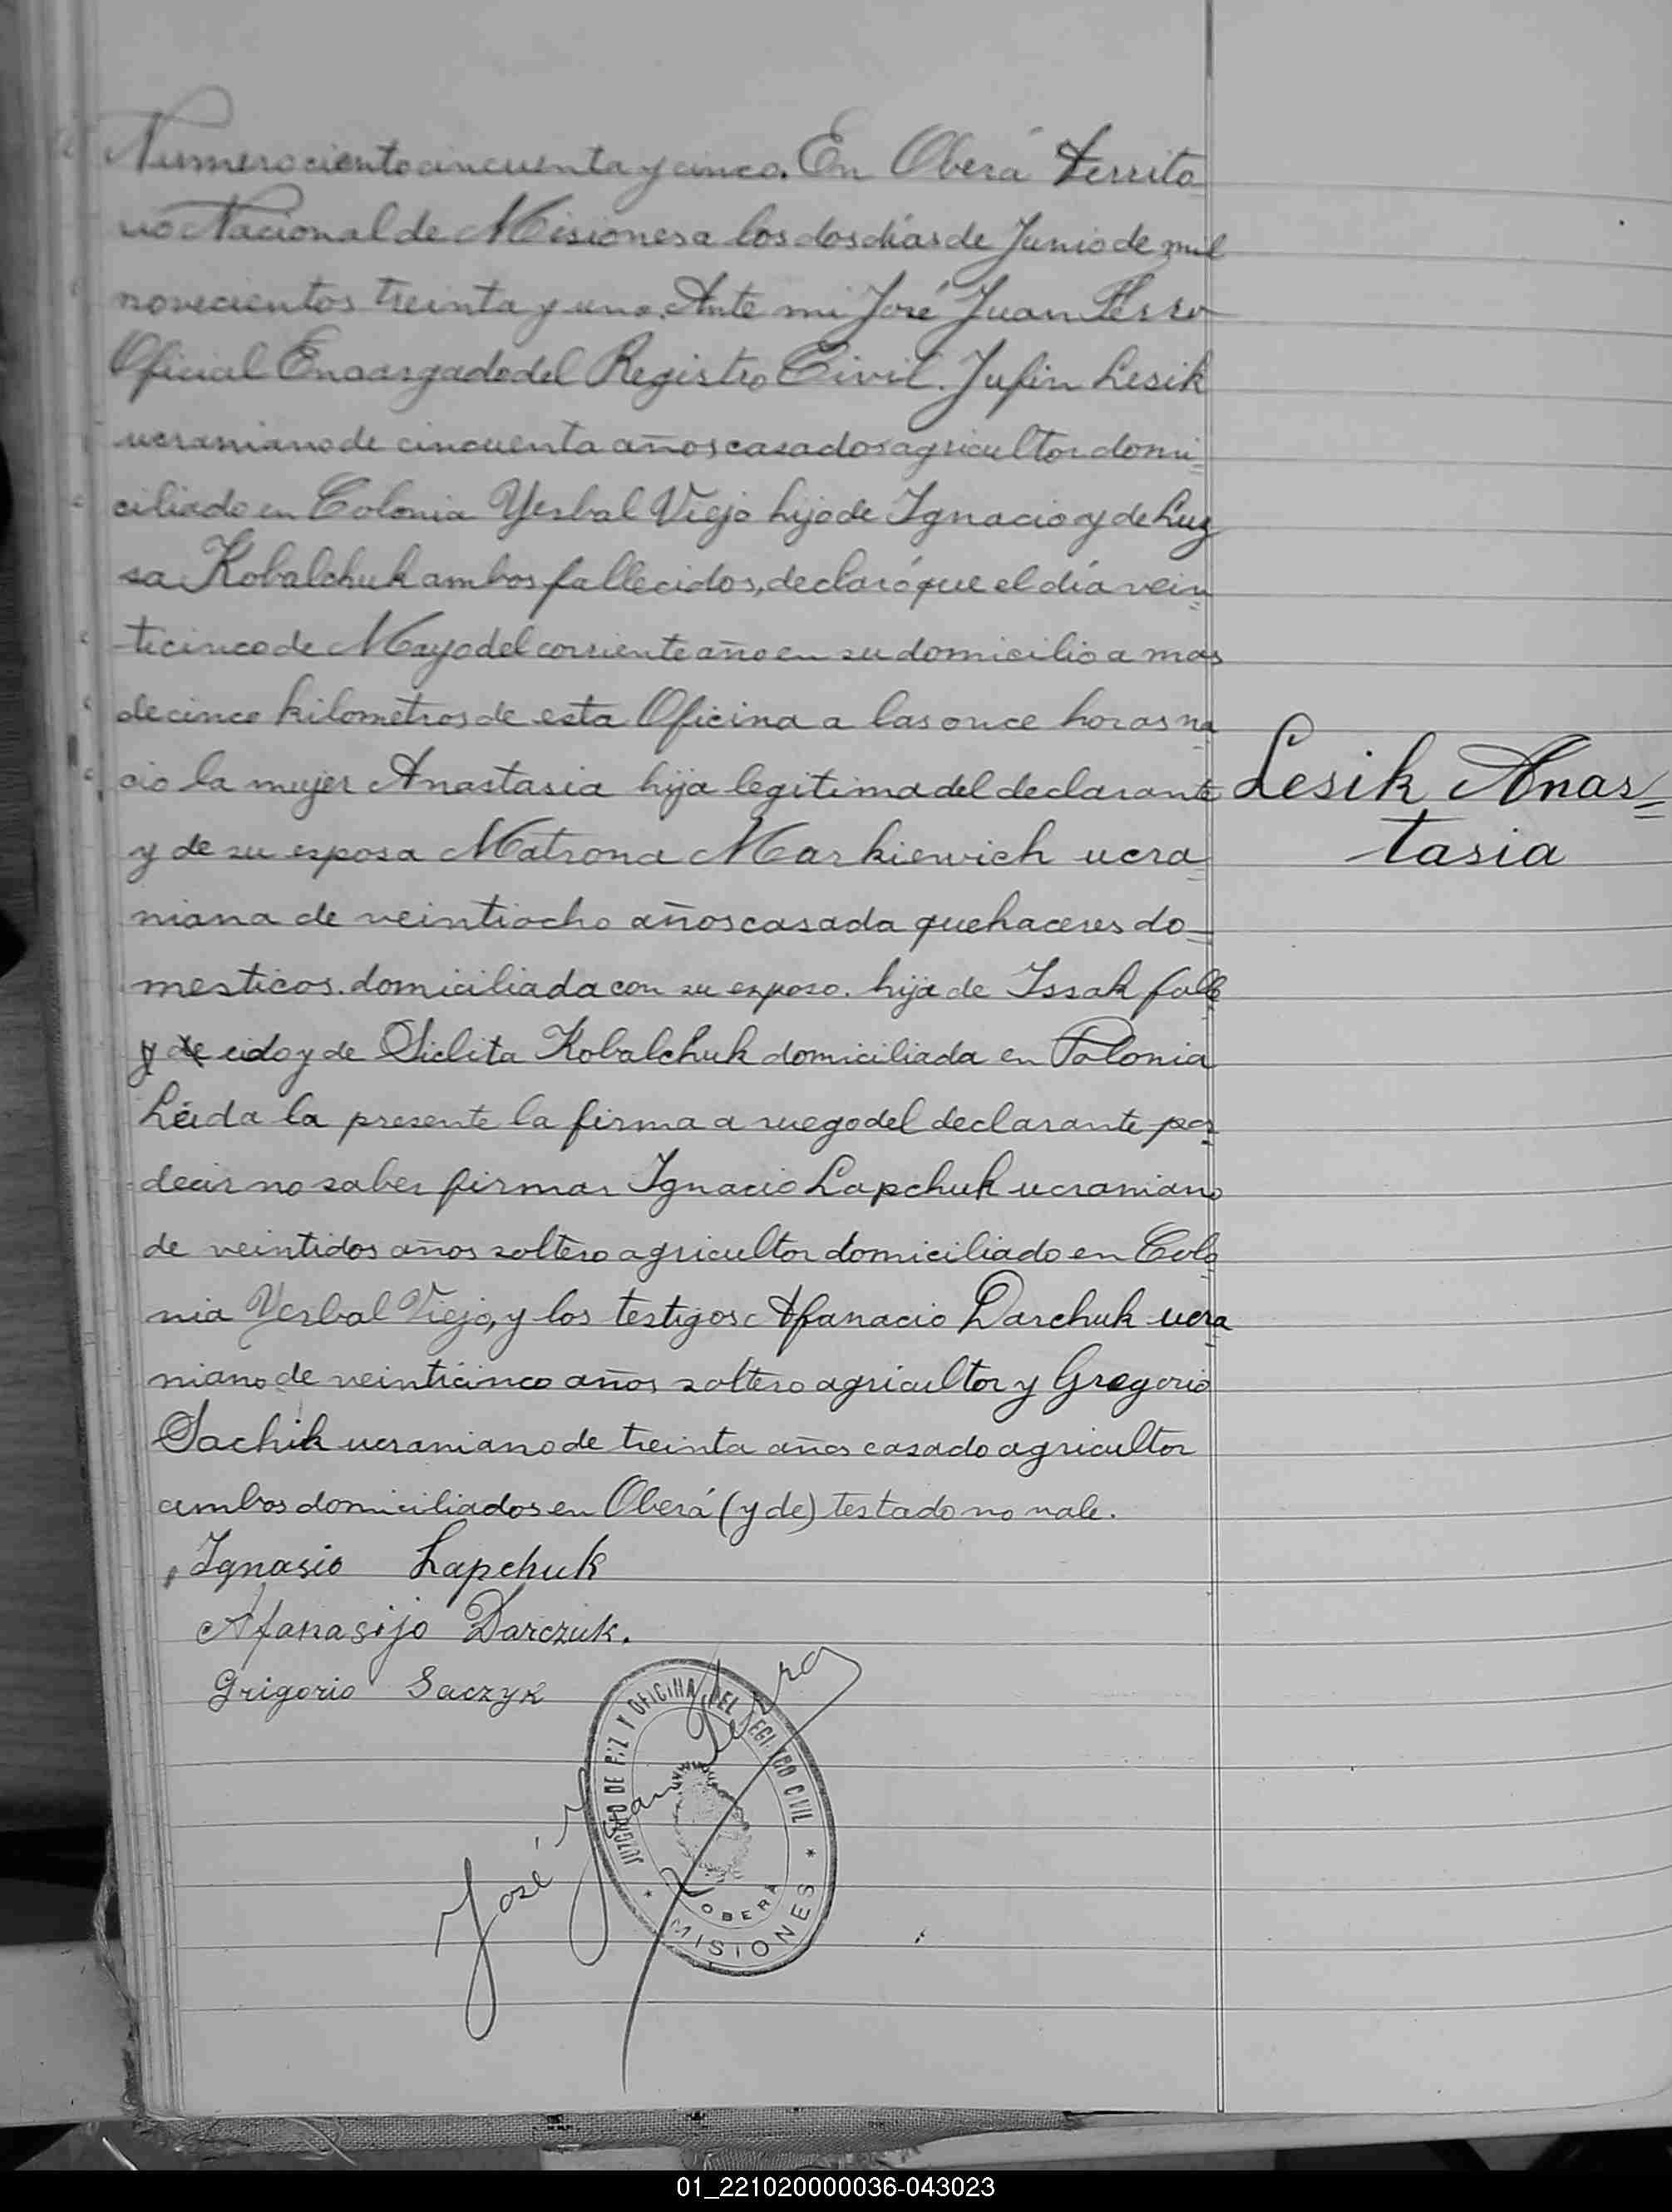 Numero ciento cincuenta y cinco. En Oberá Territo
rio Nacional de Misiones a los dos días de Junio de mil
novecientos treinta y uno. Ante mi José Juan
Oficial Encargado del Registro Civil. Jufin Lesik
ucraniano de cincuenta años casado agricultor domi=
ciliado en Colonia Yerbal Viejo hijo de Ignacio y de Luz
sa Kobalchuk ambos fallecidos, declaró que el día vein=
ticinco de Mayo del corriente año en su domicilio a mas
de cinco kilometros de esta Oficina a las once horas na=
cio la mujer Anastasia hija legitima del declarante
y de su esposa Matrona Markiewich ucra=
niana de veintiocho años casada quehaceres do=
mesticos. domiciliada con su esposo. hija de Issak falle
y de cido y de Siclita Kobalchuk domiciliada en Polonia
Leida la presente la firma a ruego del declarante por
decir no saber firmar Ignacio Lapchuk ucraniano
de veintidos años soltero agricultor domiciliado en Colo
nia Yerbal Viejo, y los testigos Afanacio Darchuk ucra=
niano de veinticinco años soltero agricultor y Gregorio
Sachik ucraniano de treinta años casado agricultor
ambos domiciliados en Oberá (y de) testado no vale.
Ignasio Lapchuk
Afanasijo Darczuk.
Grigorio Saczyk
José Juan
JUZGADO DE PAZ Y OFICINA DEL REGISTRO CIVIL
* OBERA *
MISIONES
Lesik Anas=
tasia
01_221020000036-043023